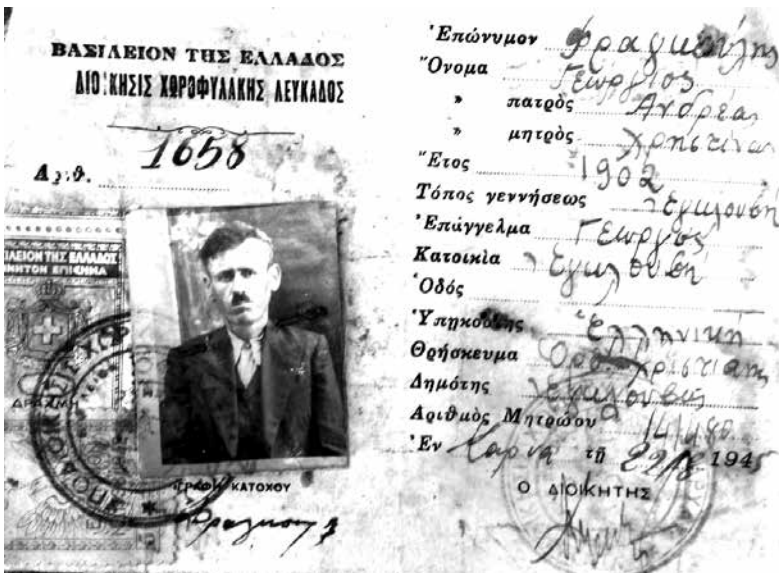 ΒΑΣΙΛΕΙΟΝ ΤΗΣ ΕΛΛΑΔΟΣ
ΔΙΟΙΚΗΣΙΣ ΧΩΡΟΦΥΛΑΚΗΣ ΛΕΥΚΑΔΟΣ
Ἀριθ. 1658
ΒΑΣΙΛΕΙΟΝ ΤΗΣ ΕΛΛΑΔΟΣ
ΚΙΝΗΤΟΝ ΕΠΙΣΗΜΑ
ΔΡΑΧΜΗ
ΥΠΟΓΡΑΦΗ ΚΑΤΟΧΟΥ
Ἐπώνυμον Φραγκούλης
Ὄνομα Γεώργιος
» πατρὸς Ανδρέας
» μητρὸς Χρηστίνας
Ἔτος 1902
Τόπος γεννήσεως Εγκλουβή
Ἐπάγγελμα Γεωργός
Κατοικία Εγκλουβή
Ὁδός
Ὑπηκοότης Ελληνική
Θρήσκευμα Ορθ. Χριστιαν
Δημότης Εγκλουβής
Ἀριθμὸς Μητρώου
Ἐν Καρυά τῇ 29/8 1945
Ο ΔΙΟΙΚΗΤΗΣ